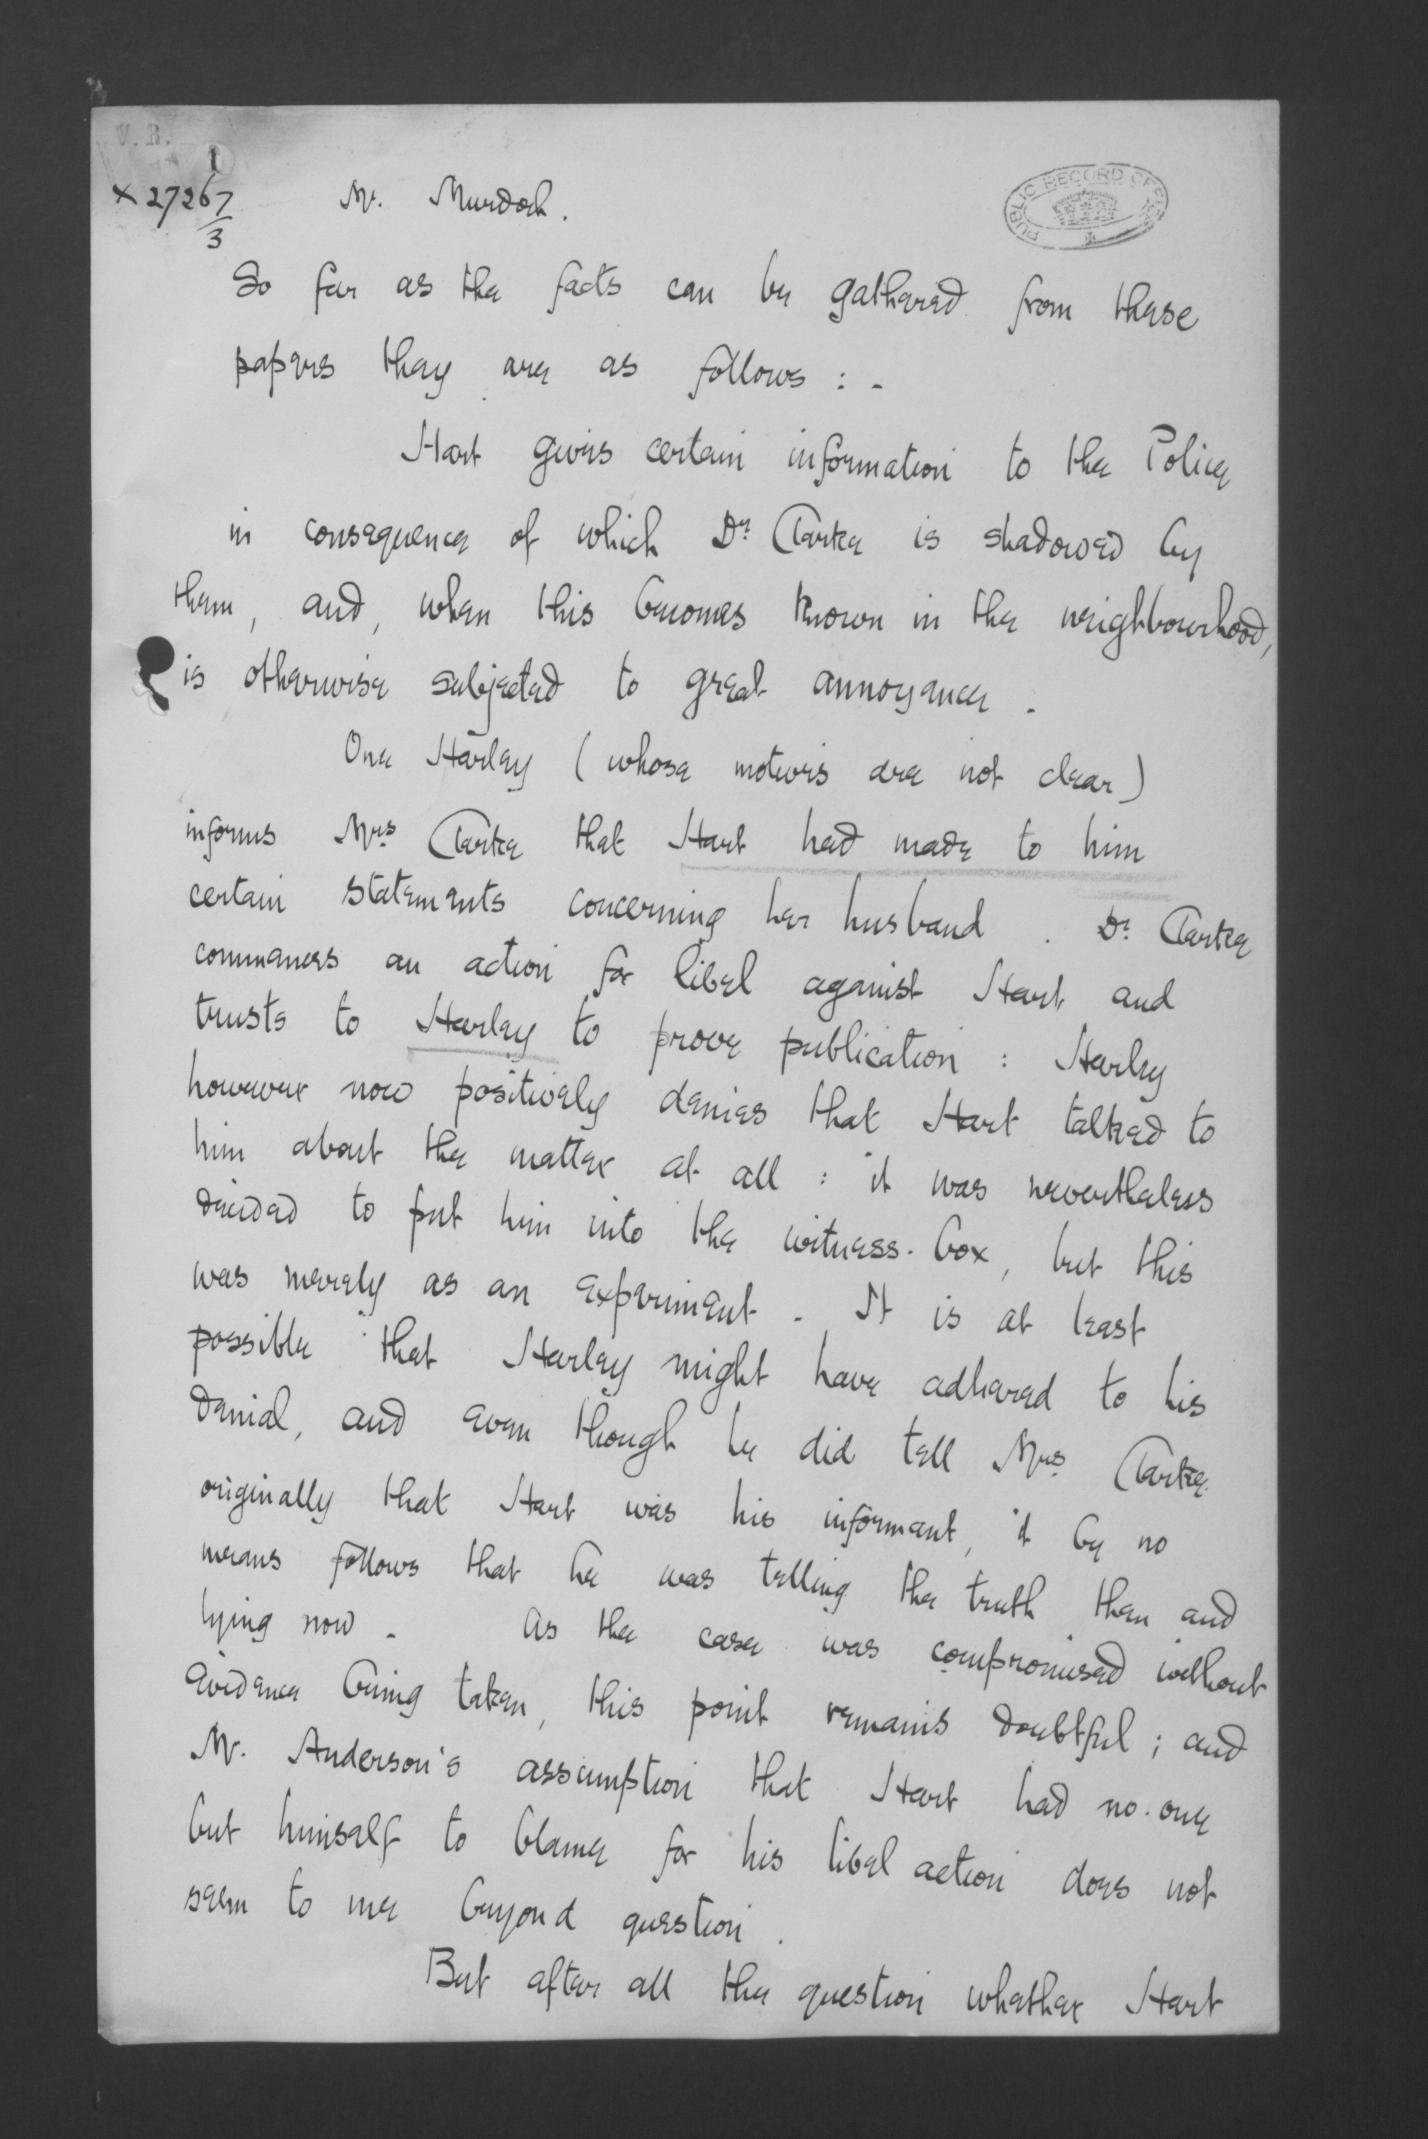 V. R.
1
x 27267/3
Mr. Murdoch.
PUBLIC RECORD OFFICE
So far as the facts can be gathered from these
papers they are as follows :-
Hart gives certain information to the Police
in consequence of which Dr Clarke is shadowed by
them, and, when this becomes known in the neighbourhood,
is otherwise subjected to great annoyance.
One Harley (whose motives are not clear)
informs Mrs Clarke that Hart had made to him
certain statements concerning her husband. Dr. Clarke
commences an action for libel against Hart and
trusts to Harley to prove publication : Harley
however now positively denies that Hart talked to
him about the matter at all : it was nevertheless
decided to put him into the witness-box, but this
was merely as an experiment. It is at least
possible that Harley might have adhered to his
denial, and even though he did tell Mrs Clarke
originally that Hart was his informant, it by no
means follows that he was telling the truth then and
lying now. As the case was compromised without
evidence being taken, this point remains doubtful ; and
Mr. Anderson's assumption that Hart had no-one
but himself to blame for his libel action does not
seem to me beyond question.
But after all the question whether Hart